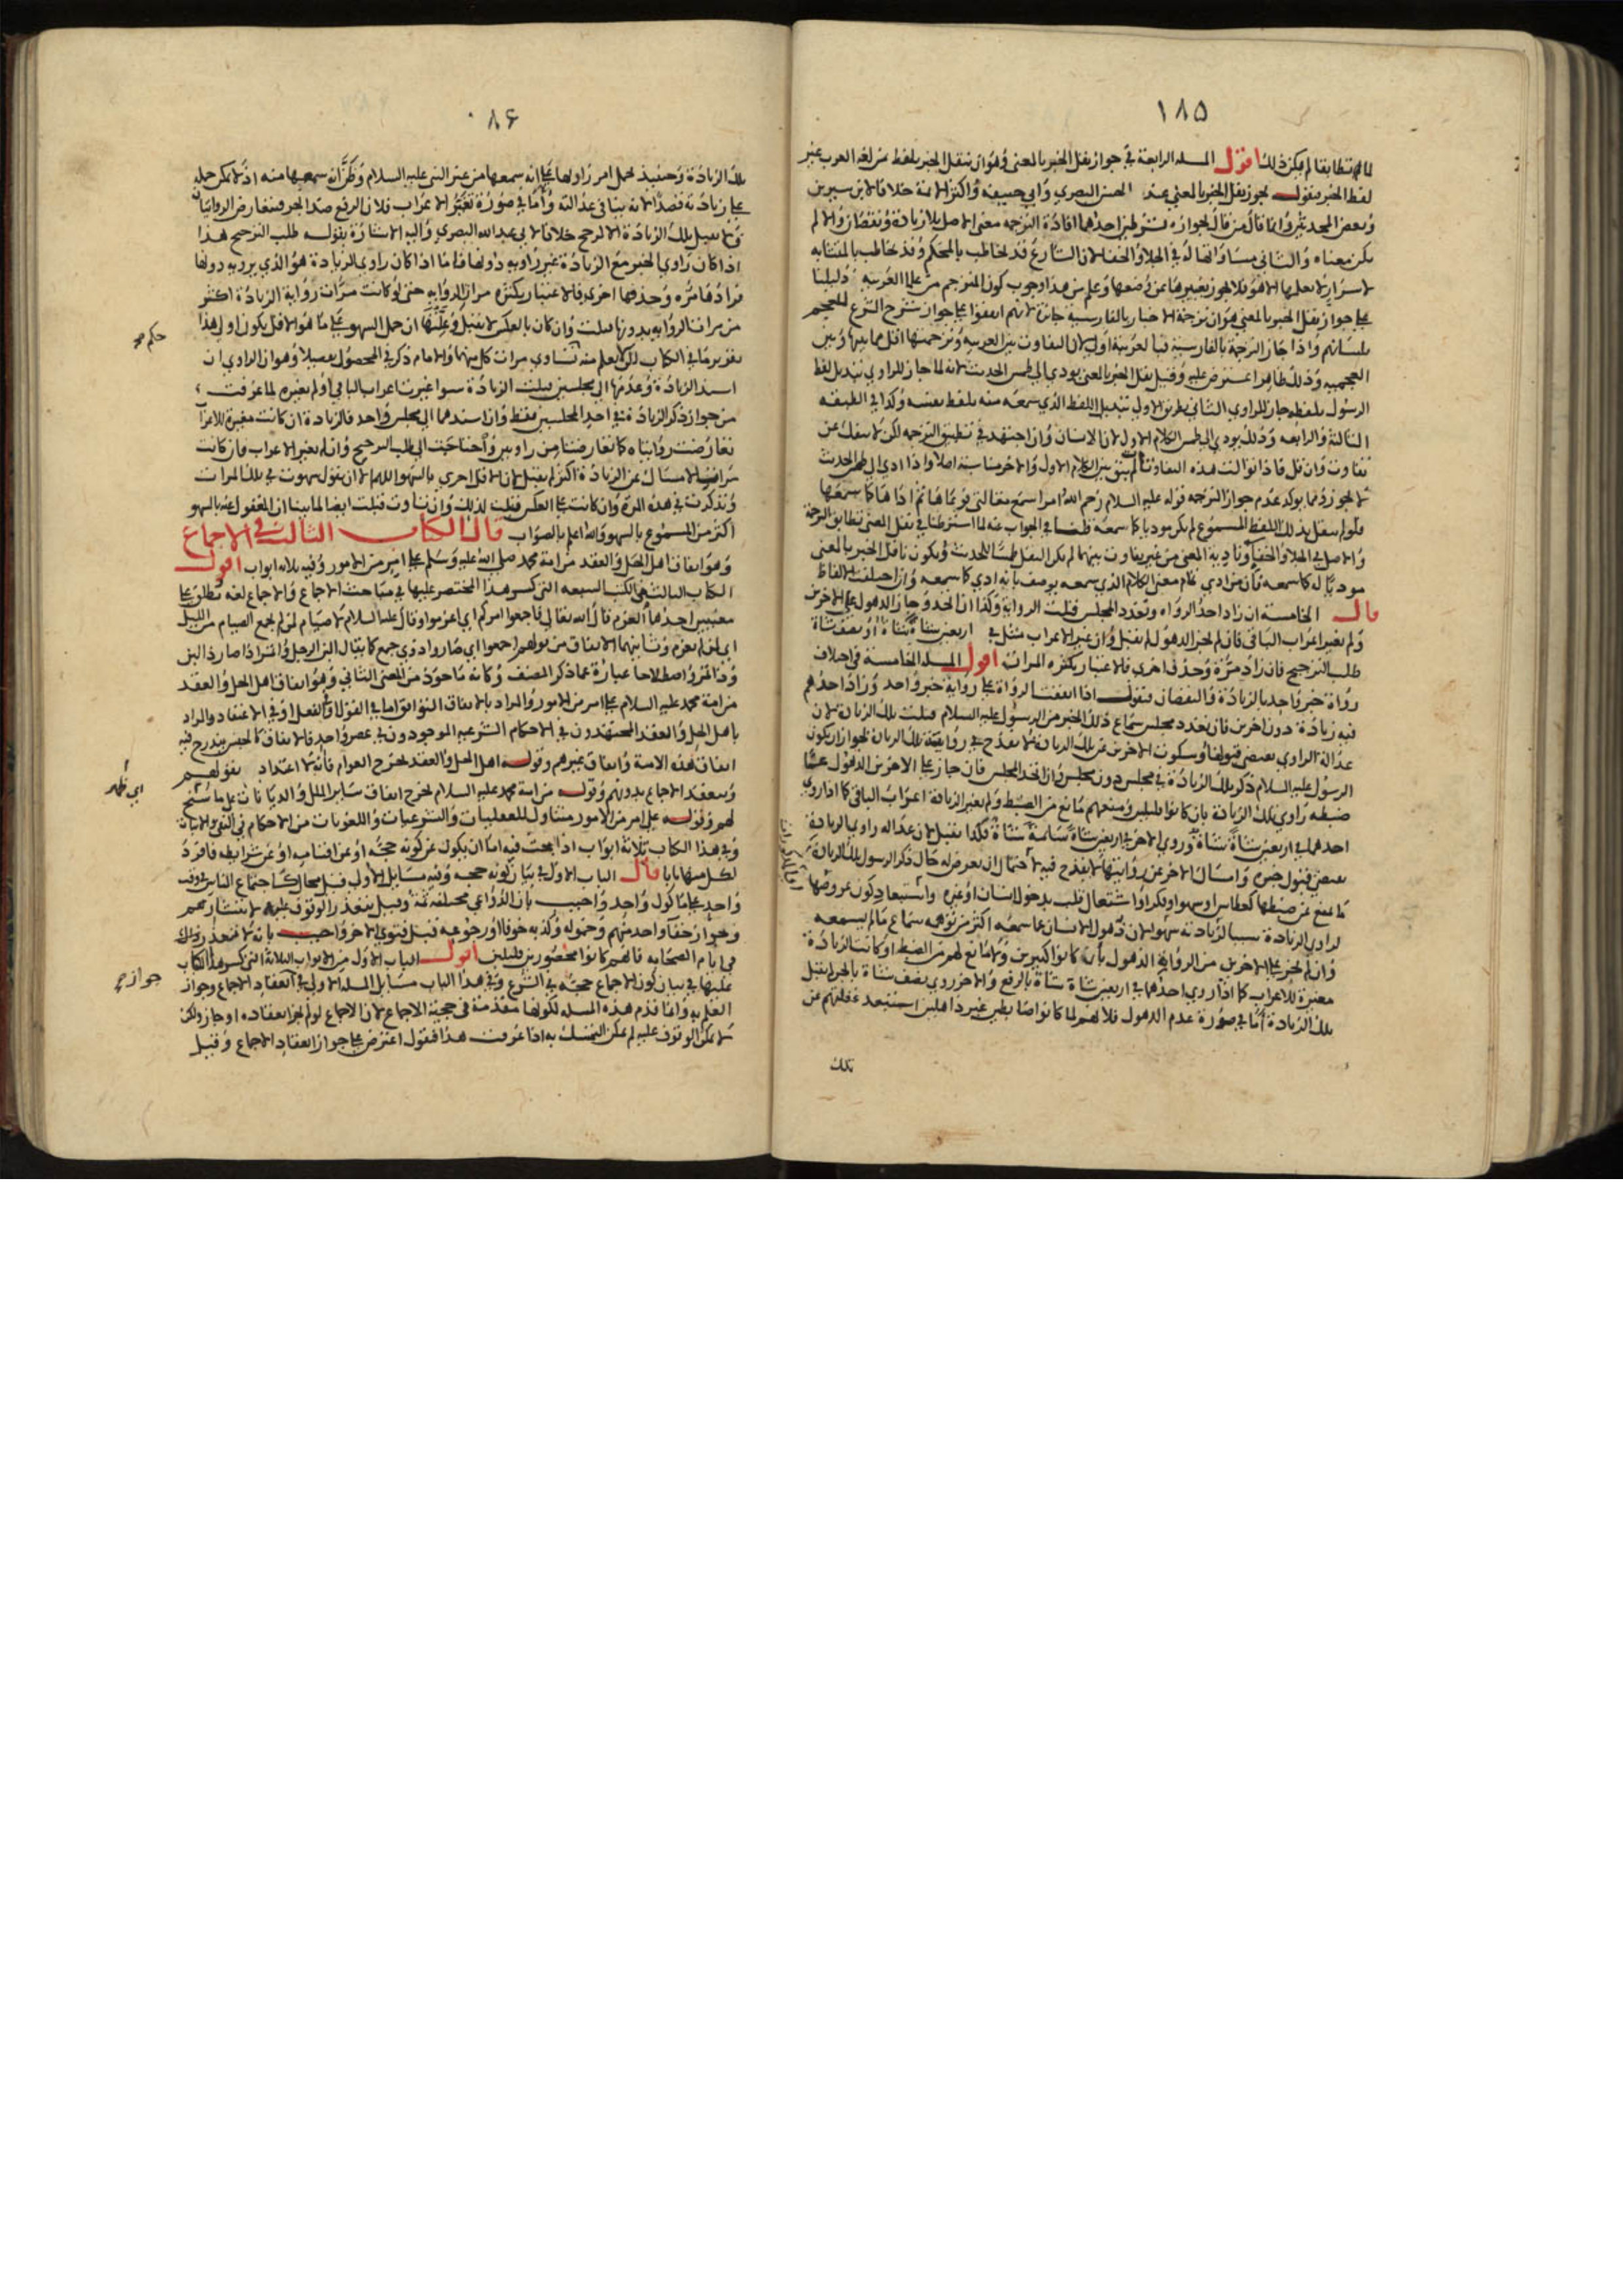 ١٨٥
لما لم تتطابقا لم يكن ذلك اقول المسئله الرابعة في جواز نقل الخبر بالمعنى وهو ان ينقل الخبر بلفظ من لغه العرب غير
لفظ الخبر فنقول يجوز نقل الخبر بالمعنى عند الحسن البصري وابي حنيفه واكثر الائمة خلافا لابن سيرين
وبعض المحدثين وانما قال من قال بجوازه بشرطين احدهما افادة الترجمه معنى الاصل بلا زيادة ونقصان والا لم
يكن معناه والثاني مساواتها له في الجلاء والخفاء لان الشارع قد يخاطب بالمحكم وقد يخاطب بالمتشابه
لاسرار لا يعلمها الا هو فلا يجوز تغييرها عن وضعها وعلم من هذا وجوب كون المترجم من علماء العربية دليلنا
على جواز نقل الخبر بالمعنى هو ان ترجمة الاخبار بالفارسية جائزة لانهم اتفقوا على جواز شرح الشرع للعجم
بلسانهم واذا جاز الترجمة بالفارسية فبالعربية اولى لان التفاوت بين العربية وترجمتها اقل مما بينها وبين
العجميه وذلك ظاهر اعترض عليه وقيل نقل الخبر بالمعنى يودي الى طمس الحديث لانه لما جاز للراوي تبديل لفظ
الرسول بلفظه جاز للراوي الثاني بطريق الاولى تبديل اللفظ الذي سمعه منه بلفظ نفسه وكذا في الطبقه
الثالثة والرابعه وذلك يودي الى طمس الكلام الاول لان الانسان وان اجتهد في تطبيق الترجمه لكن لا ينفك عن
تفاوت وان قل فاذا توالت هذه التفاوتات لم يبق بين الكلام الاول والاخر مناسبة اصلا واذا ادى الى طمس الحديث
لا يجوز ومما يوكد عدم جواز الترجمه قوله عليه السلام رحم الله امرا سمع مقالتي فوعاها ثم اداها كما سمعها
فلو لم ينقل بذلك اللفظ المسموع لم يكن موديا كما سمعه قلنا في الجواب عنه لما اشترطنا في نقل المعنى تطابق الترجمة
والاصل في الجلاء والخفاء وتادية المعنى من غير تفاوت بينهما لم يكن النقل طمسا للحديث ويكون ناقل الخبر بالمعنى
موديا له كما سمعه فان من ادى تمام معنى الكلام الذي سمعه يوصف بانه ادى كما سمعه وان اختلفت الالفاظ
قال الخامسة ان زاد احد الرواه وتعدد المجلس قبلت الرواية وكذا ان اتحد وجاز الذهول على الاخرين
ولم تغير اعراب الباقي فان لم يجز الذهول لم تقبل وان غير الاعراب مثل في اربعين شاة شاة او نصف شاة
طلب الترجيح فان زاد مرة وحذف اخرى فالاعتبار بكثرة المرات اقول المسئله الخامسة في اختلاف
رواة خبر واحد بالزيادة والنقصان فنقول اذا اتفقت الرواة على رواية خبر واحد وزاد احدهم
فيه زيادة دون اخرين فان تعدد مجلس سماع ذلك الخبر من الرسول عليه السلام قبلت تلك الزيادة لان
عدالة الراوي تقتضي قبولها وسكوت الاخرين عن تلك الزيادة لا يقدح في روايته تلك الزيادة لجواز ان يكون
الرسول عليه السلام ذكر تلك الزيادة في مجلس دون مجلس وان اتحد المجلس فان جاز على الاخرين الذهول عما
ضبطه راوي تلك الزيادة بان كانوا قليلين ومنعهم مانع من الضبط ولم تغير الزيادة اعراب الباقي كما اذا روى
احدهما في اربعين شاة شاة وروي الاخر في اربعين شاة سائمة شاة فكذا تقبل لان عدالة راوي الزيادة
تقتضي قبول خبره وامساك الاخر عن روايتها لا يقدح فيه لاحتمال ان يعرض له حال ذكر الرسول تلك الزيادة
ما يمنع عن ضبطها كعطاس او سهو او فكر او اشتغال قلب بدخول انسان او غيره واستبعاد كون عروضها
لراوي الزيادة نسيا لزيادته سهو لان ذهول الانسان عما سمعه اكثر من توهمه سماع ما لم يسمعه
وان لم يجز على الاخرين من الرواية الذهول بان كانوا كثيرين ولا مانع لهم من الضبط او كانت الزيادة
مغيرة للاعراب كما اذا روي احدهما في اربعين شاة شاة بالرفع والاخر روي نصف شاة بالجر لم تقبل
تلك الزيادة اما في صورة عدم الذهول فلانهم لما كانوا ضابطين غير ذاهلين استبعد غفلتهم عن
تلك
٠٨٦
تلك الزيادة وحينئذ يحمل امر راويها على انه سمعها من غير النبي عليه السلام وظن انه سمعها منه اذ لا يمكن حمله
على زيادته قصدا لانه ينافي عدالته واما في صورة تغير الاعراب فلان الرفع ضد الجر فتعارض الروايتان
ولا تقبل تلك الزيادة الا لمرجح خلافا لابي عبد الله البصري واليه الاشارة بقوله طلب الترجيح هذا
اذا كان راوي الخبر مع الزيادة غير راويه دونها فاما اذا كان راوي الزيادة هو الذي يرويه دونها
فزادها مره وحذفها اخرى فالاعتبار بكثرة مرات الرواية حتى لو كانت مرات رواية الزيادة اكثر
من مرات الرواية بدونها قبلت وان كان بالعكس لا تقبل وعللها ان حمل السهو على ما هو الاقل يكون اولى هذا
تقرير ما في الكتاب لكن لا يعلم منه تساوي مرات كل منهما والامام ذكر في المحصول تفصيلا وهو ان الراوي ان
اسند الزيادة وعدمها الى مجلسين قبلت الزيادة سوا غيرت اعراب الباقي او لم تغيره لما عرفت
من جواز ذكر الزيادة في احد المجلسين فقط وان اسندهما الى مجلس واحد فالزيادة ان كانت مغيرة للاعراب
تعارضت روايتاه كما تعارضتا من راويين واحتاجت الى طلب الترجيح وان لم تغير الاعراب فان كانت
مرات الامساك عن الزيادة اكثر لم تقبل لان الاقل احرى بالسهو اللهم الا ان يقول سهوت في تلك المرات
وتذكرت في هذه المرة وان كانت على العكس قبلت لذلك وان تساوت قبلت ايضا لما بينا ان الغفول عنه بالسهو
اكثر من المسموع بالسهو والله اعلم بالصواب قال الكتاب الثالث في الاجماع
وهو اتفاق اهل الحل والعقد من امة محمد صلى الله عليه وسلم على امر من الامور وفيه ثلاثه ابواب اقول
الكتاب الثالث من الكتب السبعه التي كسر هذا المختصر عليها في مباحث الاجماع والاجماع لغه يطلق على
معنيين احدهما العزم قال الله تعالى فاجمعوا امركم اي اعزموا وقال عليه السلام لا صيام لمن لم يجمع الصيام من الليل
اي لمن لم يعزم وثانيهما الاتفاق من قولهم اجمعوا اي صاروا ذوي جمع كما يقال البن الرجل واتمر اذا صار ذا لبن
وذا تمر واصطلاحا عبارة عما ذكر المصنف وكانه ماخوذ من المعنى الثاني وهو اتفاق اهل الحل والعقد
من امة محمد عليه السلام على امر من الامور والمراد بالاتفاق التوافق اما في القول او الفعل او في الاعتقاد والمراد
باهل الحل والعقد المجتهدون في الاحكام الشرعيه الموجودون في عصر واحد فالاتفاق كالجنس يندرج فيه
اتفاق هذه الامة واتفاق غيرهم وقوله اهل الحل والعقد يخرج العوام فانه لا اعتداد بقولهم
وينعقد الاجماع بدونهم وقوله من امة محمد عليه السلام يخرج اتفاق سائر الملل والديانات على ما سنح
لهم وقوله على امر من الامور متناول للعقليات والشرعيات واللغويات من الاحكام في النفي والاثبات
وفي هذا الكتاب ثلاثة ابواب اذ البحث فيه اما ان يكون عن كونه حجة او عن اقسامه او عن شرايطه فافرد
لكل منها بابا قال الباب الاول في بيان كونه حجه وفيه مسايل الاولى قيل محال كاجتماع الناس في وقت
واحد على ماكول واحد واجيب بان الدواعي مختلفة ثمة وقيل يتعذر الوقوف عليه لانتشارهم
وجواز خفاء واحد منهم وخموله وكذبه خوفا او رجوعه قبل فتوى الاخر واجيب بانه لا يتعذر ذلك
في ايام الصحابه فانهم كانوا محصورين قليلين اقول الباب الاول من الابواب الثلاثة التي كسر هذا الكتاب
عليها في بيان كون الاجماع حجة في الشرع وفي هذا الباب مسايل المسئله الاولى في انعقاد الاجماع وجواز
العلم به وانما قدم هذه المسئله لكونها مقدمة في حجية الاجماع لان الاجماع لو لم يجز انعقاده او جاز ولكن
لا يمكن الوقوف عليه لم يمكن التمسك به اذا عرفت هذا فنقول اعترض على جواز انعقاد الاجماع وقيل